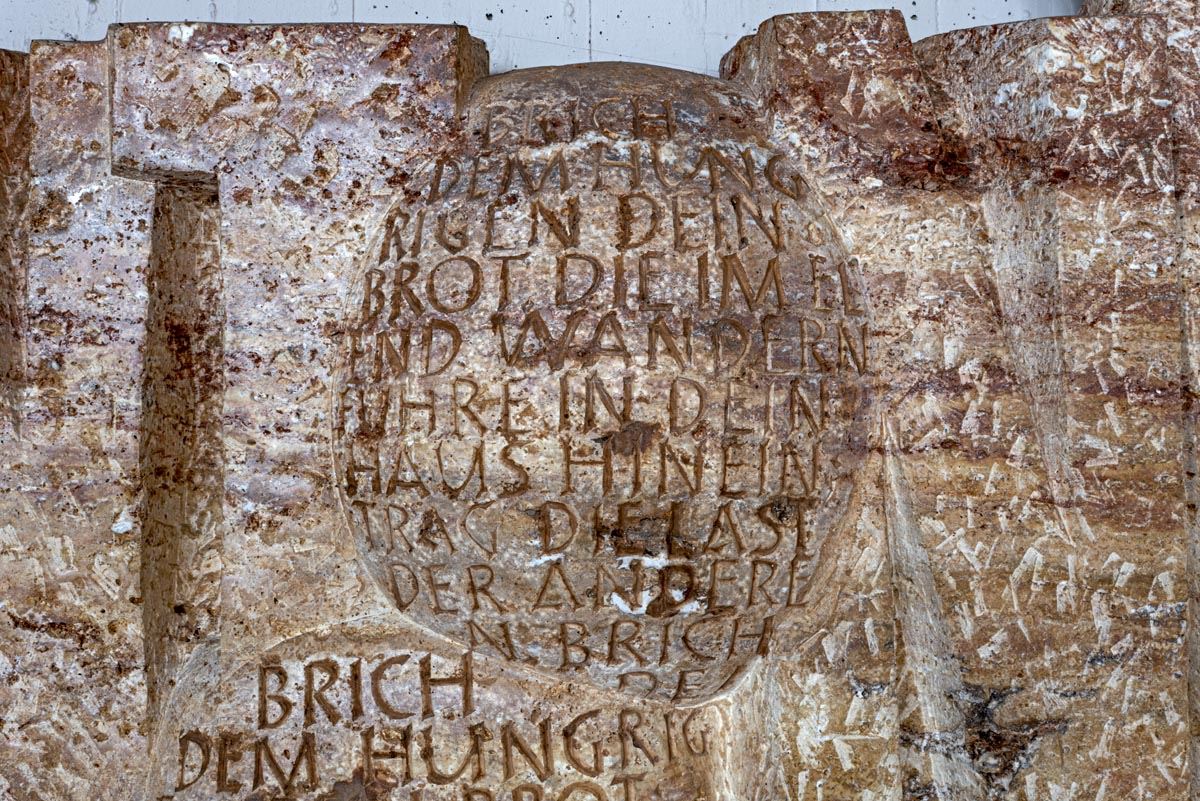 BRICH
DEM HUNG
RIGEN DEIN
BROT DIE IM EL
END WANDERN
FÜHRE IN DEIN
HAUS HINEIN;
TRAG DIE LAST
DER ANDERE
N. BRICH
DEM
BRICH
DEM HUNGRIG
BROT